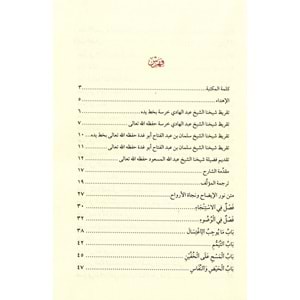 فهرس
كلمة المكتبة ٣
الإهداء ٥
تقريظ شيخنا الشيخ عبد الهادي خرسة بخط يده ٦
تقريظ شيخنا الشيخ عبد الهادي خرسة حفظه الله تعالى ٧
تقريظ شيخنا الشيخ سلمان بن عبد الفتاح أبو غدة حفظه الله تعالى بخط يده ١٠
تقريظ شيخنا الشيخ سلمان بن عبد الفتاح أبو غدة حفظه الله تعالى ١١
تقديم فضيلة شيخنا الشيخ عبد الله المسعود حفظه الله تعالى ١٢
مقدّمة الشارح ١٧
ترجمة المؤلّف ١٩
متن نور الإيضاح ونجاة الأرواح ٢٧
فَصْلٌ فِي الاسْتِنْجَاءِ ٣٠
فَصْلٌ فِي الْوُضُوءِ ٣٢
بَابُ مَا يُوجِبُ الاغْتِسَالَ ٣٨
بَابُ التَّيَمُّمِ ٤٢
بَابُ الْمَسْحِ عَلَى الْخُفَّيْنِ ٤٥
بَابُ الْحَيْضِ وَالنِّفَاسِ ٤٧